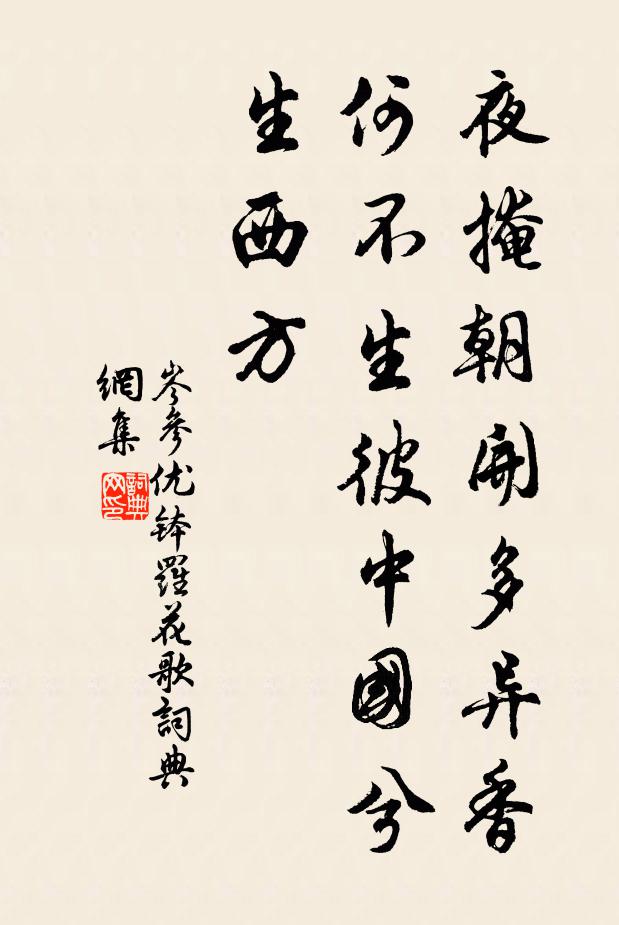 夜掩朝開多异香
何不生彼中國兮
生西方
岑參优钵羅花歌詞典
網集
詞典网印